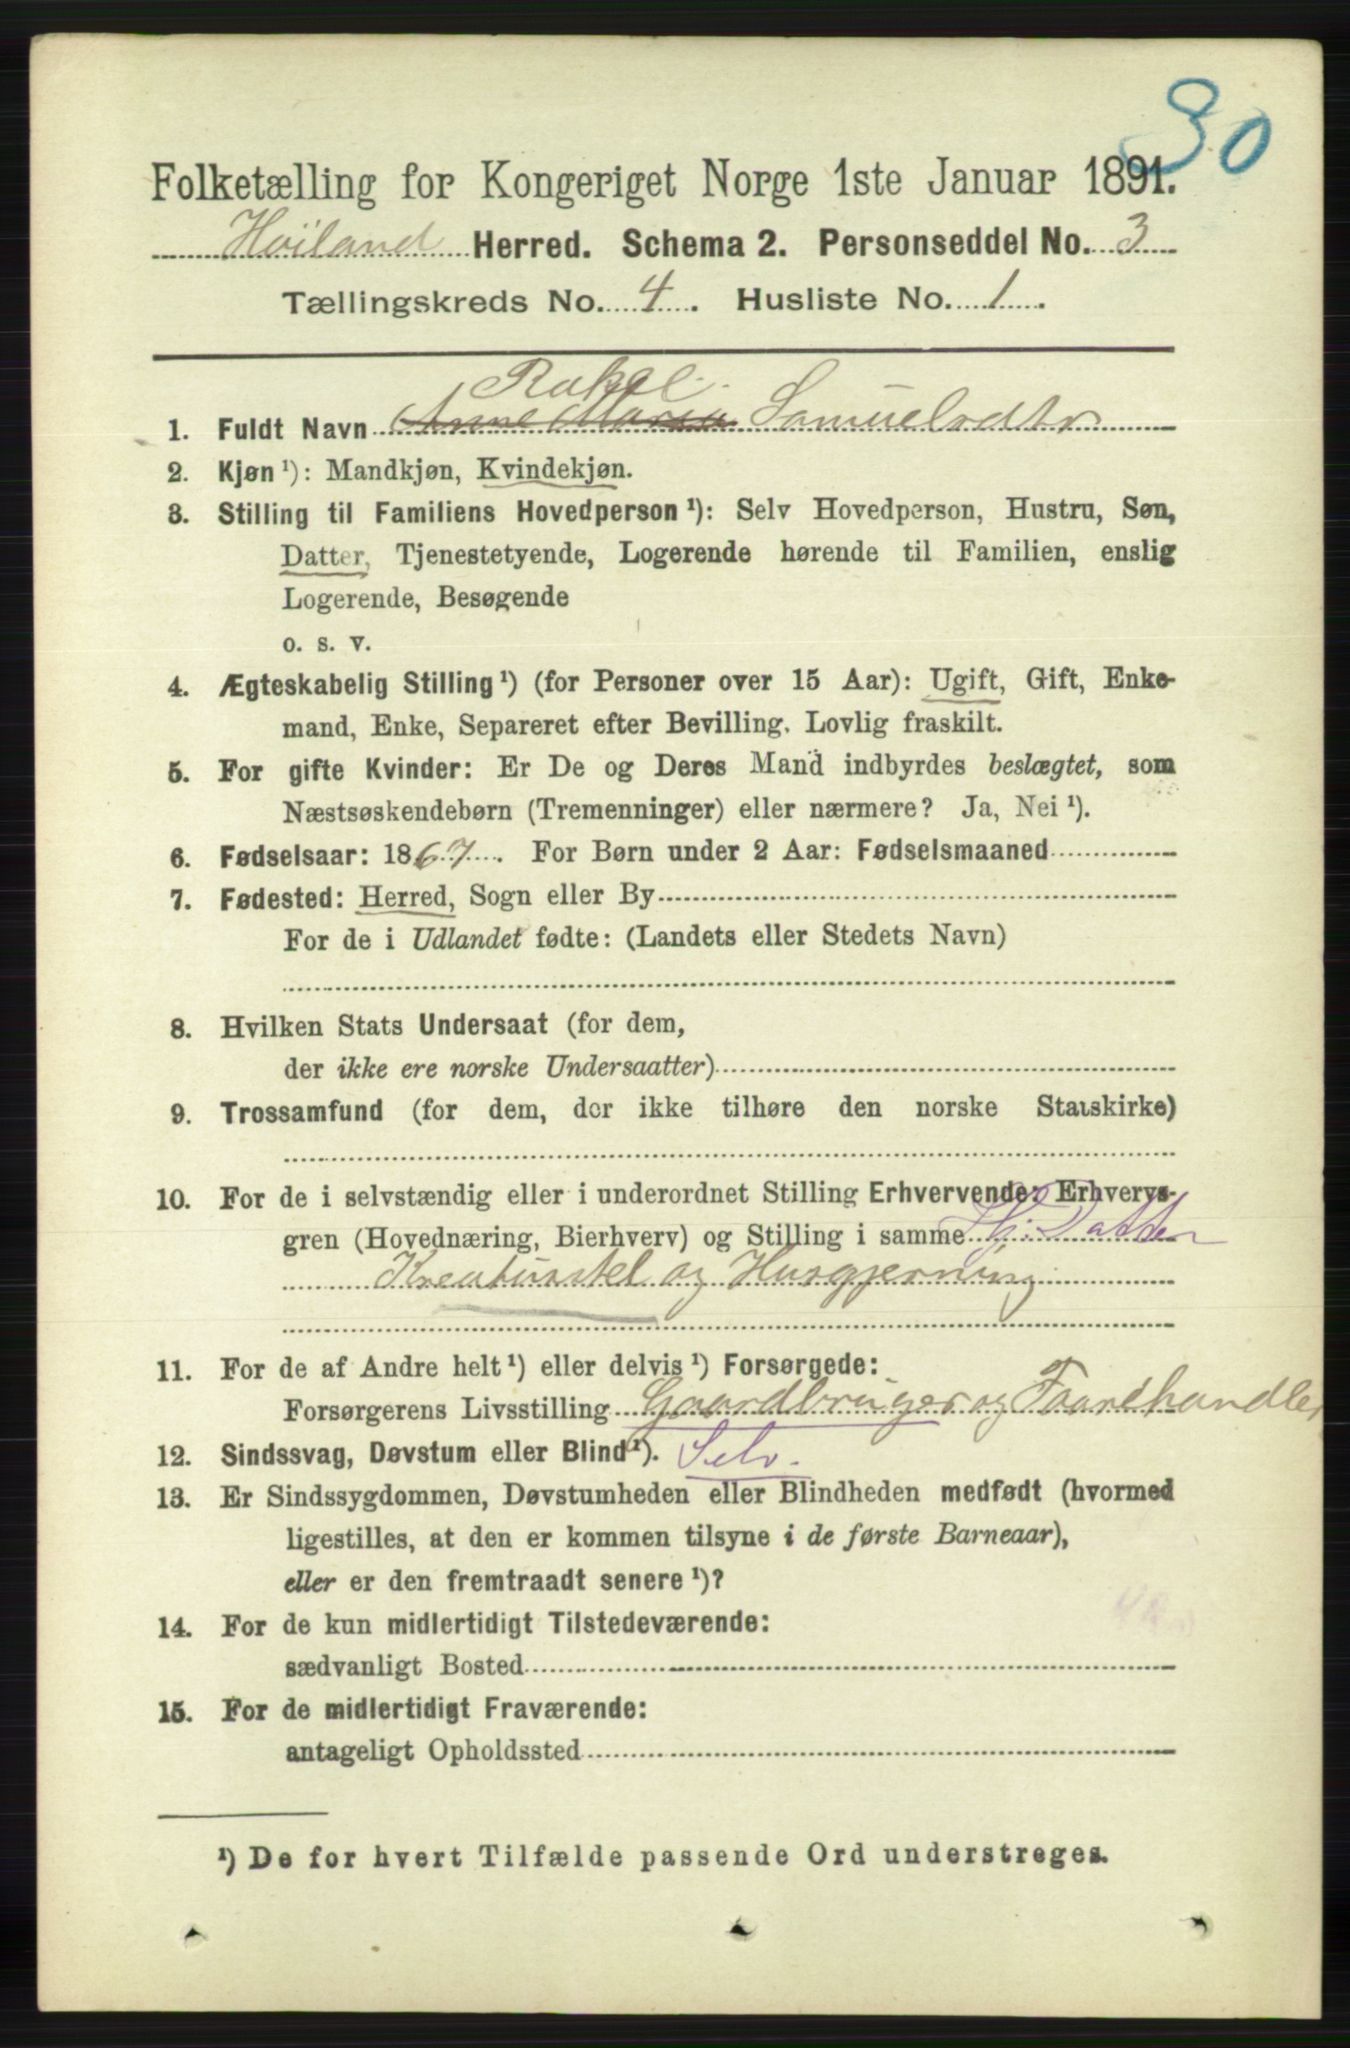 30
Folketælling for Kongeriget Norge 1ste Januar 1891.
Høiland Herred. Schema 2. Personseddel No. 3
Tællingskreds No. 4. Husliste No. 1.
Rakel
1. Fuldt Navn Anne Maria Samuelsdtr
2. Kjøn ¹): Mandkjøn, Kvindekjøn.
3. Stilling til Familiens Hovedperson ¹): Selv Hovedperson, Hustru, Søn,
Datter, Tjenestetyende, Logerende hørende til Familien, enslig
Logerende, Besøgende
o. s. v.
4. Ægteskabelig Stilling ¹) (for Personer over 15 Aar): Ugift, Gift, Enke-
mand, Enke, Separeret efter Bevilling. Lovlig fraskilt.
5. For gifte Kvinder: Er De og Deres Mand indbyrdes beslægtet, som
Næstsøskendebørn (Tremenninger) eller nærmere? Ja, Nei ¹).
6. Fødselsaar: 1867. For Børn under 2 Aar: Fødselsmaaned
7. Fødested: Herred, Sogn eller By
For de i Udlandet fødte: (Landets eller Stedets Navn)
8. Hvilken Stats Undersaat (for dem,
der ikke ere norske Undersaatter)
9. Trossamfund (for dem, der ikke tilhøre den norske Statskirke)
10. For de i selvstændig eller i underordnet Stilling Erhvervende: Erhvervs-
gren (Hovednæring, Bierhverv) og Stilling i samme Hj: Datter
Kreaturstel og Husgjerning
11. For de af Andre helt ¹) eller delvis ¹) Forsørgede:
Forsørgerens Livsstilling Gaardbruger og Faarehandler
12. Sindssvag, Døvstum eller Blind ¹). Selv.
13. Er Sindssygdommen, Døvstumheden eller Blindheden medfødt (hvormed
ligestilles, at den er kommen tilsyne i de første Barneaar),
eller er den fremtraadt senere ¹)?
14. For de kun midlertidigt Tilstedeværende:
sædvanligt Bosted
15. For de midlertidigt Fraværende:
antageligt Opholdssted
¹) De for hvert Tilfælde passende Ord understreges.